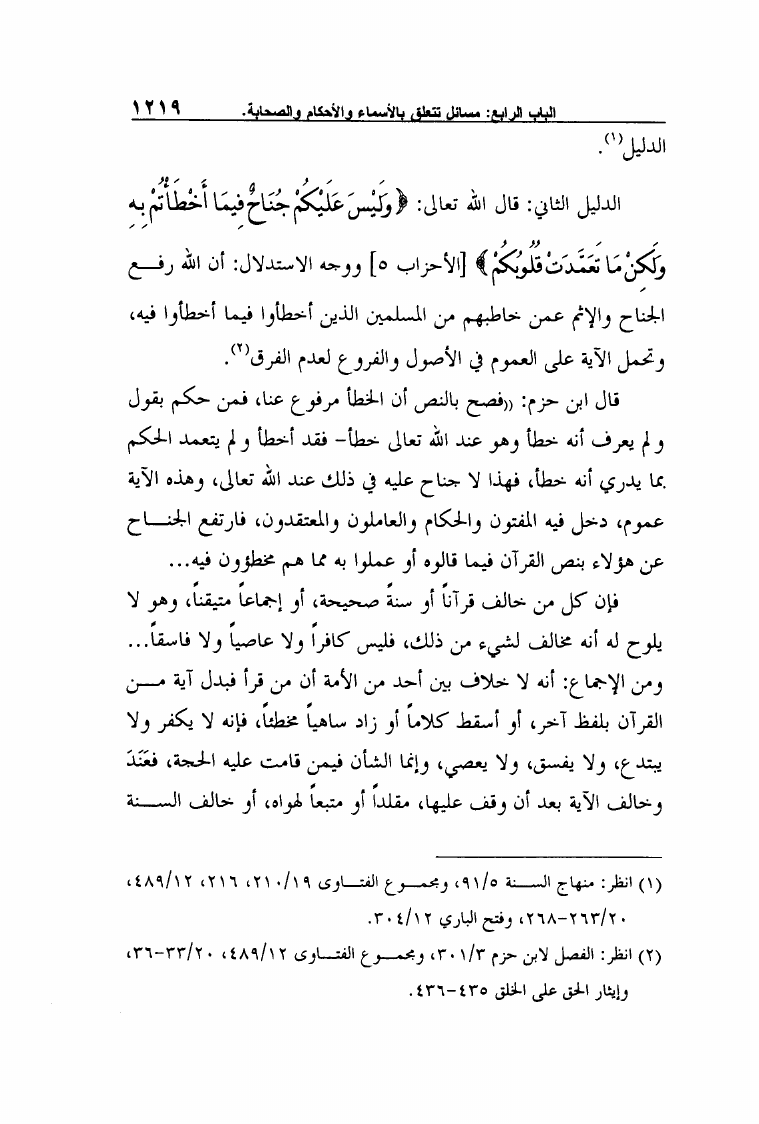 الباب الرابع: مسائل تتعلق بالأسماء والأحكام والصحابة. ١٢١٩
الدليل(١).
الدليل الثاني: قال الله تعالى: ﴿وَلَيْسَ عَلَيْكُمْ جُنَاحٌ فِيمَا أَخْطَأْتُمْ بِهِ
وَلَكِنْ مَا تَعَمَّدَتْ قُلُوبُكُمْ﴾ [الأحزاب ٥] ووجه الاستدلال: أن الله رفع
الجناح والإثم عمن خاطبهم من المسلمين الذين أخطأوا فيما أخطأوا فيه،
وتحمل الآية على العموم في الأصول والفروع لعدم الفرق(٢).
قال ابن حزم: ((فصح بالنص أن الخطأ مرفوع عنا، فمن حكم بقول
ولم يعرف أنه خطأ وهو عند الله تعالى خطأ- فقد أخطأ ولم يتعمد الحكم
بما يدري أنه خطأ، فهذا لا جناح عليه في ذلك عند الله تعالى، وهذه الآية
عموم، دخل فيه المفتون والحكام والعاملون والمعتقدون، فارتفع الجناح
عن هؤلاء بنص القرآن فيما قالوه أو عملوا به مما هم مخطؤون فيه...
فإن كل من خالف قرآناً أو سنةً صحيحة، أو إجماعاً متيقناً، وهو لا
يلوح له أنه مخالف لشيء من ذلك، فليس كافراً ولا عاصياً ولا فاسقاً...
ومن الإجماع: أنه لا خلاف بين أحد من الأمة أن من قرأ فبدل آية من
القرآن بلفظ آخر، أو أسقط كلاماً أو زاد ساهياً مخطئاً، فإنه لا يكفر ولا
يبتدع، ولا يفسق، ولا يعصي، وإنما الشأن فيمن قامت عليه الحجة، فعَنَدَ
وخالف الآية بعد أن وقف عليها، مقلداً أو متبعاً لهواه، أو خالف السنة
(١) انظر: منهاج السنة ٩١/٥، ومجموع الفتاوى ٢١٠/١٩، ٢١٦، ٤٨٩/١٢،
٢٦٣/٢٠-٢٦٨، وفتح الباري ٣٠٤/١٢.
(٢) انظر: الفصل لابن حزم ٣٠١/٣، ومجموع الفتاوى ٤٨٩/١٢، ٣٣/٢٠-٣٦،
وإيثار الحق على الخلق ٤٣٥-٤٣٦.